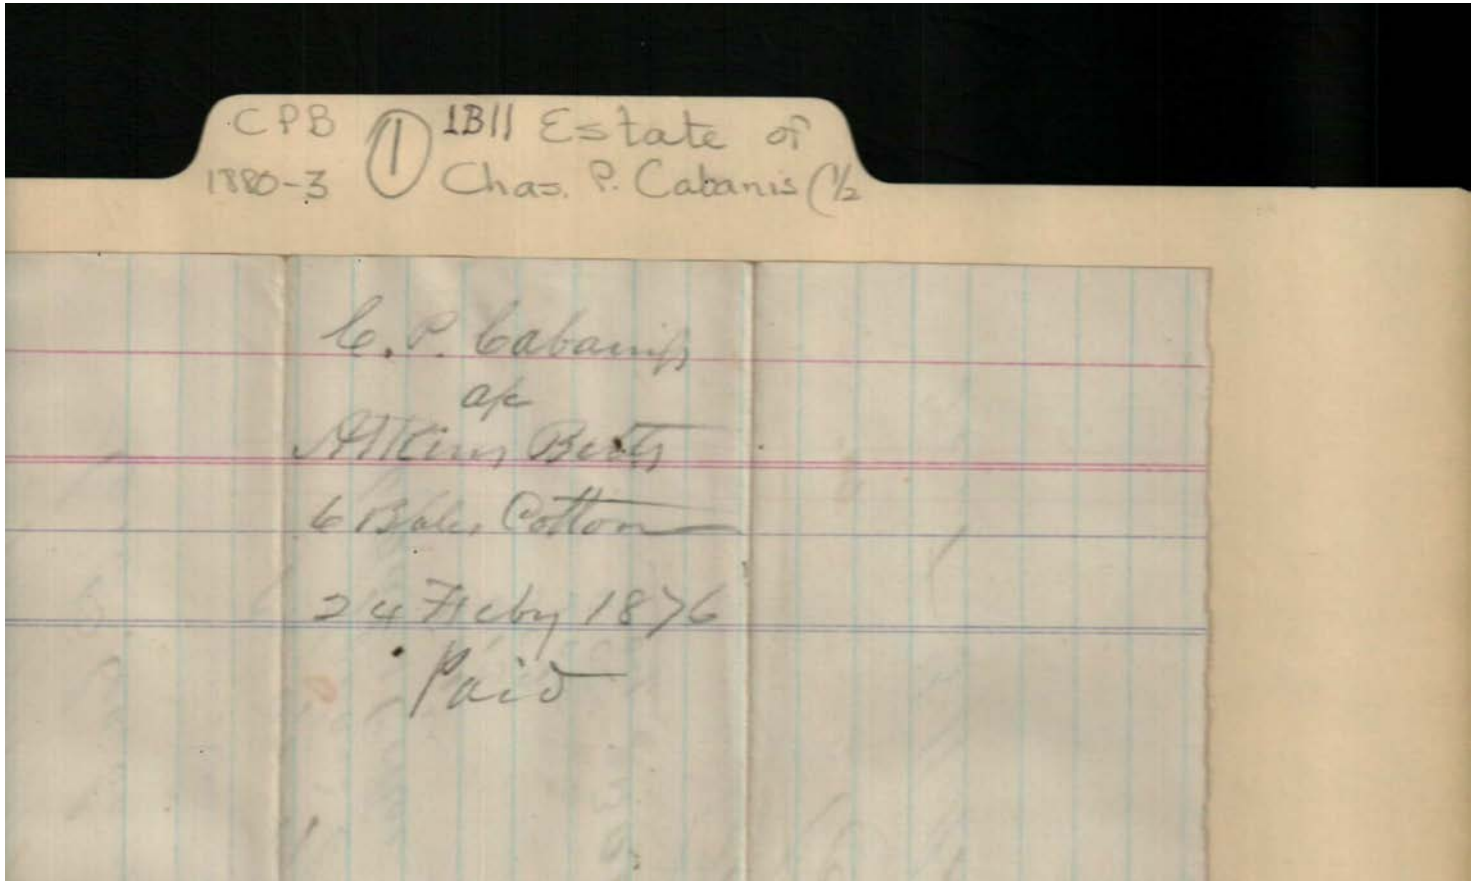 CPB ① 1B11 Estate of
1880-3 Chas. P. Cabanis (1/2
C. P. Cabaniss
a/c
Atkins
6 Bales Cotton
24 Feby 1876
Paid